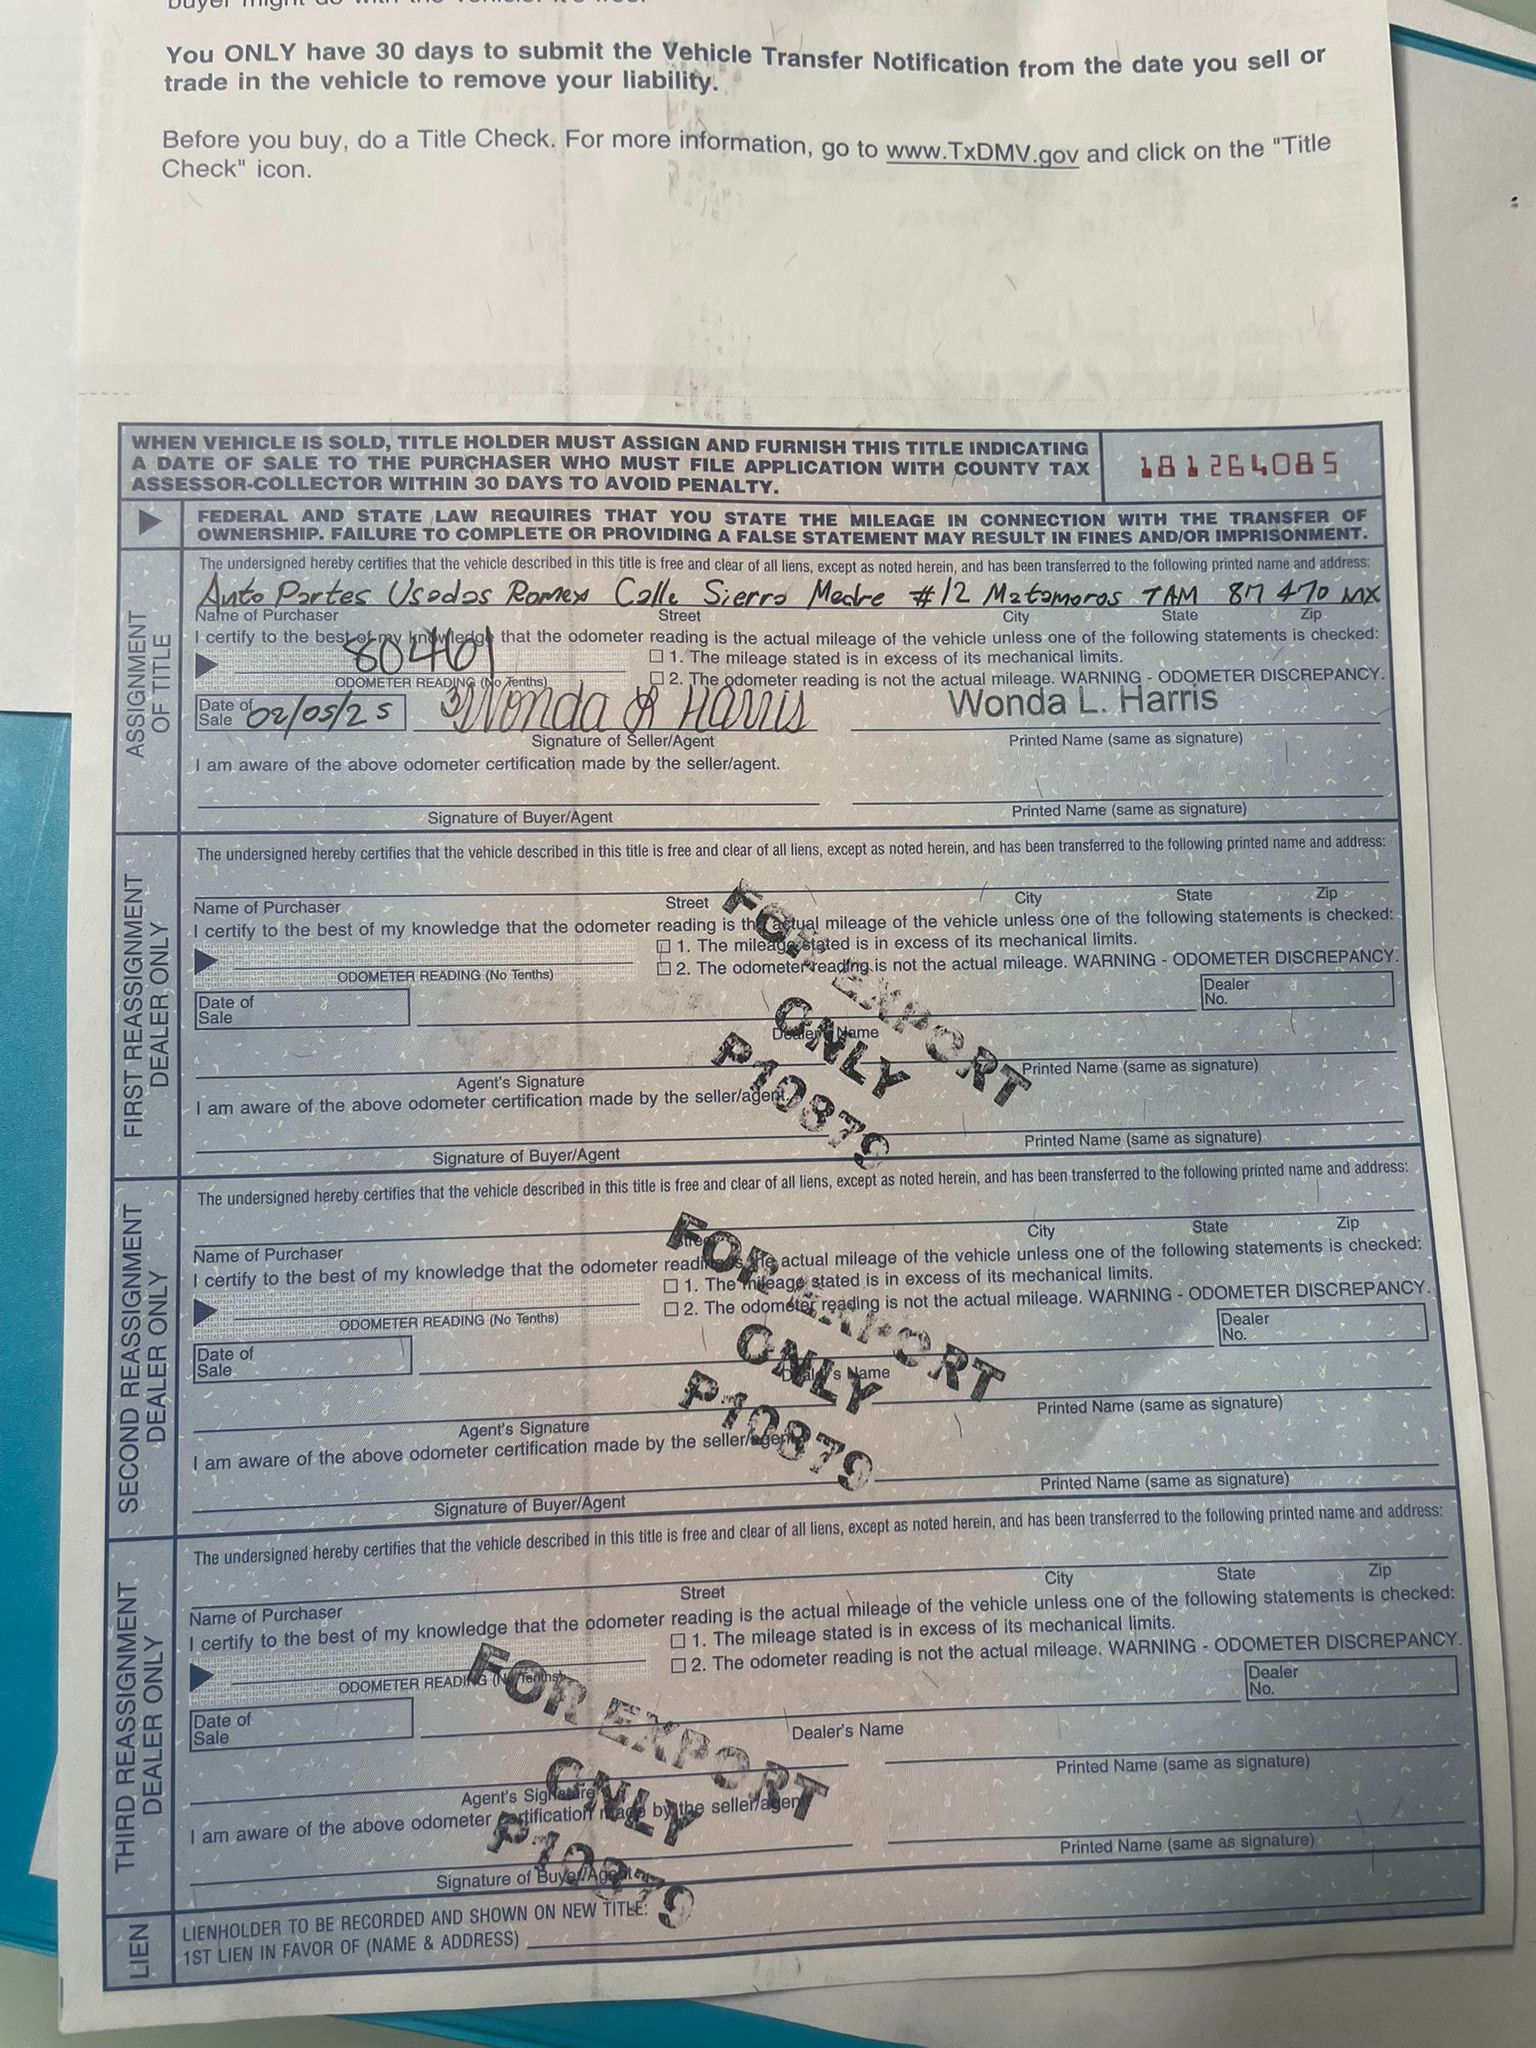 buyer might do with the vehicle. It's free.
You ONLY have 30 days to submit the Vehicle Transfer Notification from the date you sell or
trade in the vehicle to remove your liability.
Before you buy, do a Title Check. For more information, go to www.TxDMV.gov and click on the "Title
Check" icon.
WHEN VEHICLE IS SOLD, TITLE HOLDER MUST ASSIGN AND FURNISH THIS TITLE INDICATING
A DATE OF SALE TO THE PURCHASER WHO MUST FILE APPLICATION WITH COUNTY TAX
ASSESSOR-COLLECTOR WITHIN 30 DAYS TO AVOID PENALTY.
181264085
FEDERAL AND STATE LAW REQUIRES THAT YOU STATE THE MILEAGE IN CONNECTION WITH THE TRANSFER OF
OWNERSHIP. FAILURE TO COMPLETE OR PROVIDING A FALSE STATEMENT MAY RESULT IN FINES AND/OR IMPRISONMENT.
ASSIGNMENT
OF TITLE
The undersigned hereby certifies that the vehicle described in this title is free and clear of all liens, except as noted herein, and has been transferred to the following printed name and address:
Auto Partes Usadas Romex Calle Sierra Madre #12 Matamoros TAM 87470 MX
Name of Purchaser Street City State Zip
I certify to the best of my knowledge that the odometer reading is the actual mileage of the vehicle unless one of the following statements is checked:
80461
1. The mileage stated is in excess of its mechanical limits.
ODOMETER READING (No Tenths)
2. The odometer reading is not the actual mileage. WARNING - ODOMETER DISCREPANCY.
Date of
Sale
02/05/25 Wonda L Harris Wonda L. Harris
Signature of Seller/Agent Printed Name (same as signature)
I am aware of the above odometer certification made by the seller/agent.
Signature of Buyer/Agent Printed Name (same as signature)
FIRST REASSIGNMENT
DEALER ONLY
The undersigned hereby certifies that the vehicle described in this title is free and clear of all liens, except as noted herein, and has been transferred to the following printed name and address:
Name of Purchaser Street City State Zip
I certify to the best of my knowledge that the odometer reading is the actual mileage of the vehicle unless one of the following statements is checked:
1. The mileage stated is in excess of its mechanical limits.
ODOMETER READING (No Tenths)
2. The odometer reading is not the actual mileage. WARNING - ODOMETER DISCREPANCY.
Date of
Sale
Dealer
No.
Dealer's Name
Agent's Signature Printed Name (same as signature)
I am aware of the above odometer certification made by the seller/agent.
Signature of Buyer/Agent Printed Name (same as signature)
FOR EXPORT
ONLY
P10879
SECOND REASSIGNMENT
DEALER ONLY
The undersigned hereby certifies that the vehicle described in this title is free and clear of all liens, except as noted herein, and has been transferred to the following printed name and address:
Name of Purchaser Street City State Zip
I certify to the best of my knowledge that the odometer reading is the actual mileage of the vehicle unless one of the following statements is checked:
1. The mileage stated is in excess of its mechanical limits.
ODOMETER READING (No Tenths)
2. The odometer reading is not the actual mileage. WARNING - ODOMETER DISCREPANCY.
Date of
Sale
Dealer
No.
Dealer's Name
Agent's Signature Printed Name (same as signature)
I am aware of the above odometer certification made by the seller/agent.
Signature of Buyer/Agent Printed Name (same as signature)
FOR EXPORT
ONLY
P10879
THIRD REASSIGNMENT
DEALER ONLY
The undersigned hereby certifies that the vehicle described in this title is free and clear of all liens, except as noted herein, and has been transferred to the following printed name and address:
Name of Purchaser Street City State Zip
I certify to the best of my knowledge that the odometer reading is the actual mileage of the vehicle unless one of the following statements is checked:
1. The mileage stated is in excess of its mechanical limits.
ODOMETER READING (No Tenths)
2. The odometer reading is not the actual mileage. WARNING - ODOMETER DISCREPANCY.
Date of
Sale
Dealer
No.
Dealer's Name
Agent's Signature Printed Name (same as signature)
I am aware of the above odometer certification made by the seller/agent
Signature of Buyer/Agent Printed Name (same as signature)
FOR EXPORT
ONLY
P10879
LIEN
LIENHOLDER TO BE RECORDED AND SHOWN ON NEW TITLE:
1ST LIEN IN FAVOR OF (NAME & ADDRESS)